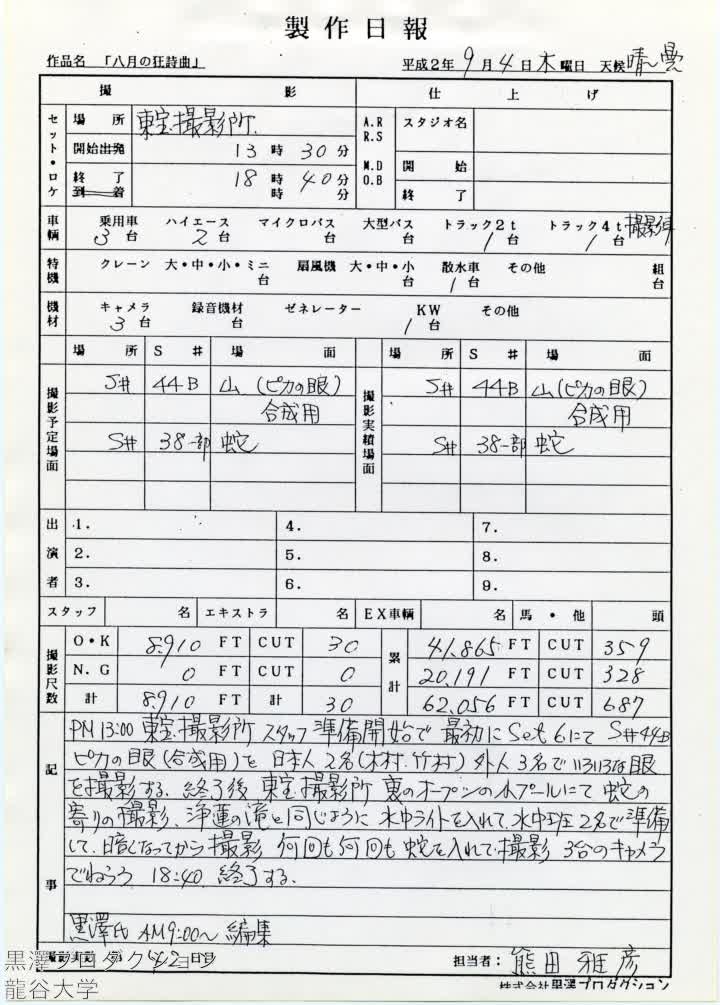 製作日報
作品名 「八月の狂詩曲」 平成2年 9月 4日 木曜日 天候 晴〜曇
撮影 仕上げ
セット・ロケ 場所 東宝撮影所. A.R R.S スタジオ名
開始出発 13時30分 M.D O.B 開始
終了 18時40分 終了
到着 時 分
車輌 乗用車 3台 ハイエース 2台 マイクロバス 台 大型バス 台 トラック2t 1台 トラック4t 1台 撮影車
特機 クレーン 大・中・小・ミニ 台 扇風機 大・中・小 台 散水車 1台 その他 組 台
機材 キャメラ 3台 録音機材 台 ゼネレーター KW 1台 その他
場所 S# 場面 場所 S# 場面
撮影予定場面 撮影実績場面
S# 44B 山(ピカの眼) S# 44B 山(ピカの眼)
合成用 合成用
S# 38一部 蛇 S# 38一部 蛇
出演者
1. 4. 7.
2. 5. 8.
3. 6. 9.
スタッフ 名 エキストラ 名 EX車輌 名 馬・他 頭
撮影尺数 累計
O・K 8,910 FT CUT 30 41,865 FT CUT 359
N.G 0 FT CUT 0 20,191 FT CUT 328
計 8,910 FT 計 30 62,056 FT CUT 687
記事
PM 13:00 東宝撮影所 スタッフ準備開始で 最初に Set 6にて S#44B
ピカの眼(合成用)を 日本人2名(木村.竹村) 外人3名でいろいろな眼
を撮影する. 終了後 東宝撮影所 裏のオープンの小プールにて 蛇の
寄りの撮影、浄蓮の滝と同じように 水中ライトを入れて、水中班2名で準備
して、暗くなってから撮影 何回も何回も 蛇を入れて撮影 3台のキャメラ
でねらう 18:40. 終了する.
黒澤氏 AM9:00〜 編集
担当者: 熊田雅彦
株式会社黒澤プロダクション
黒澤プロダクション
龍谷大学